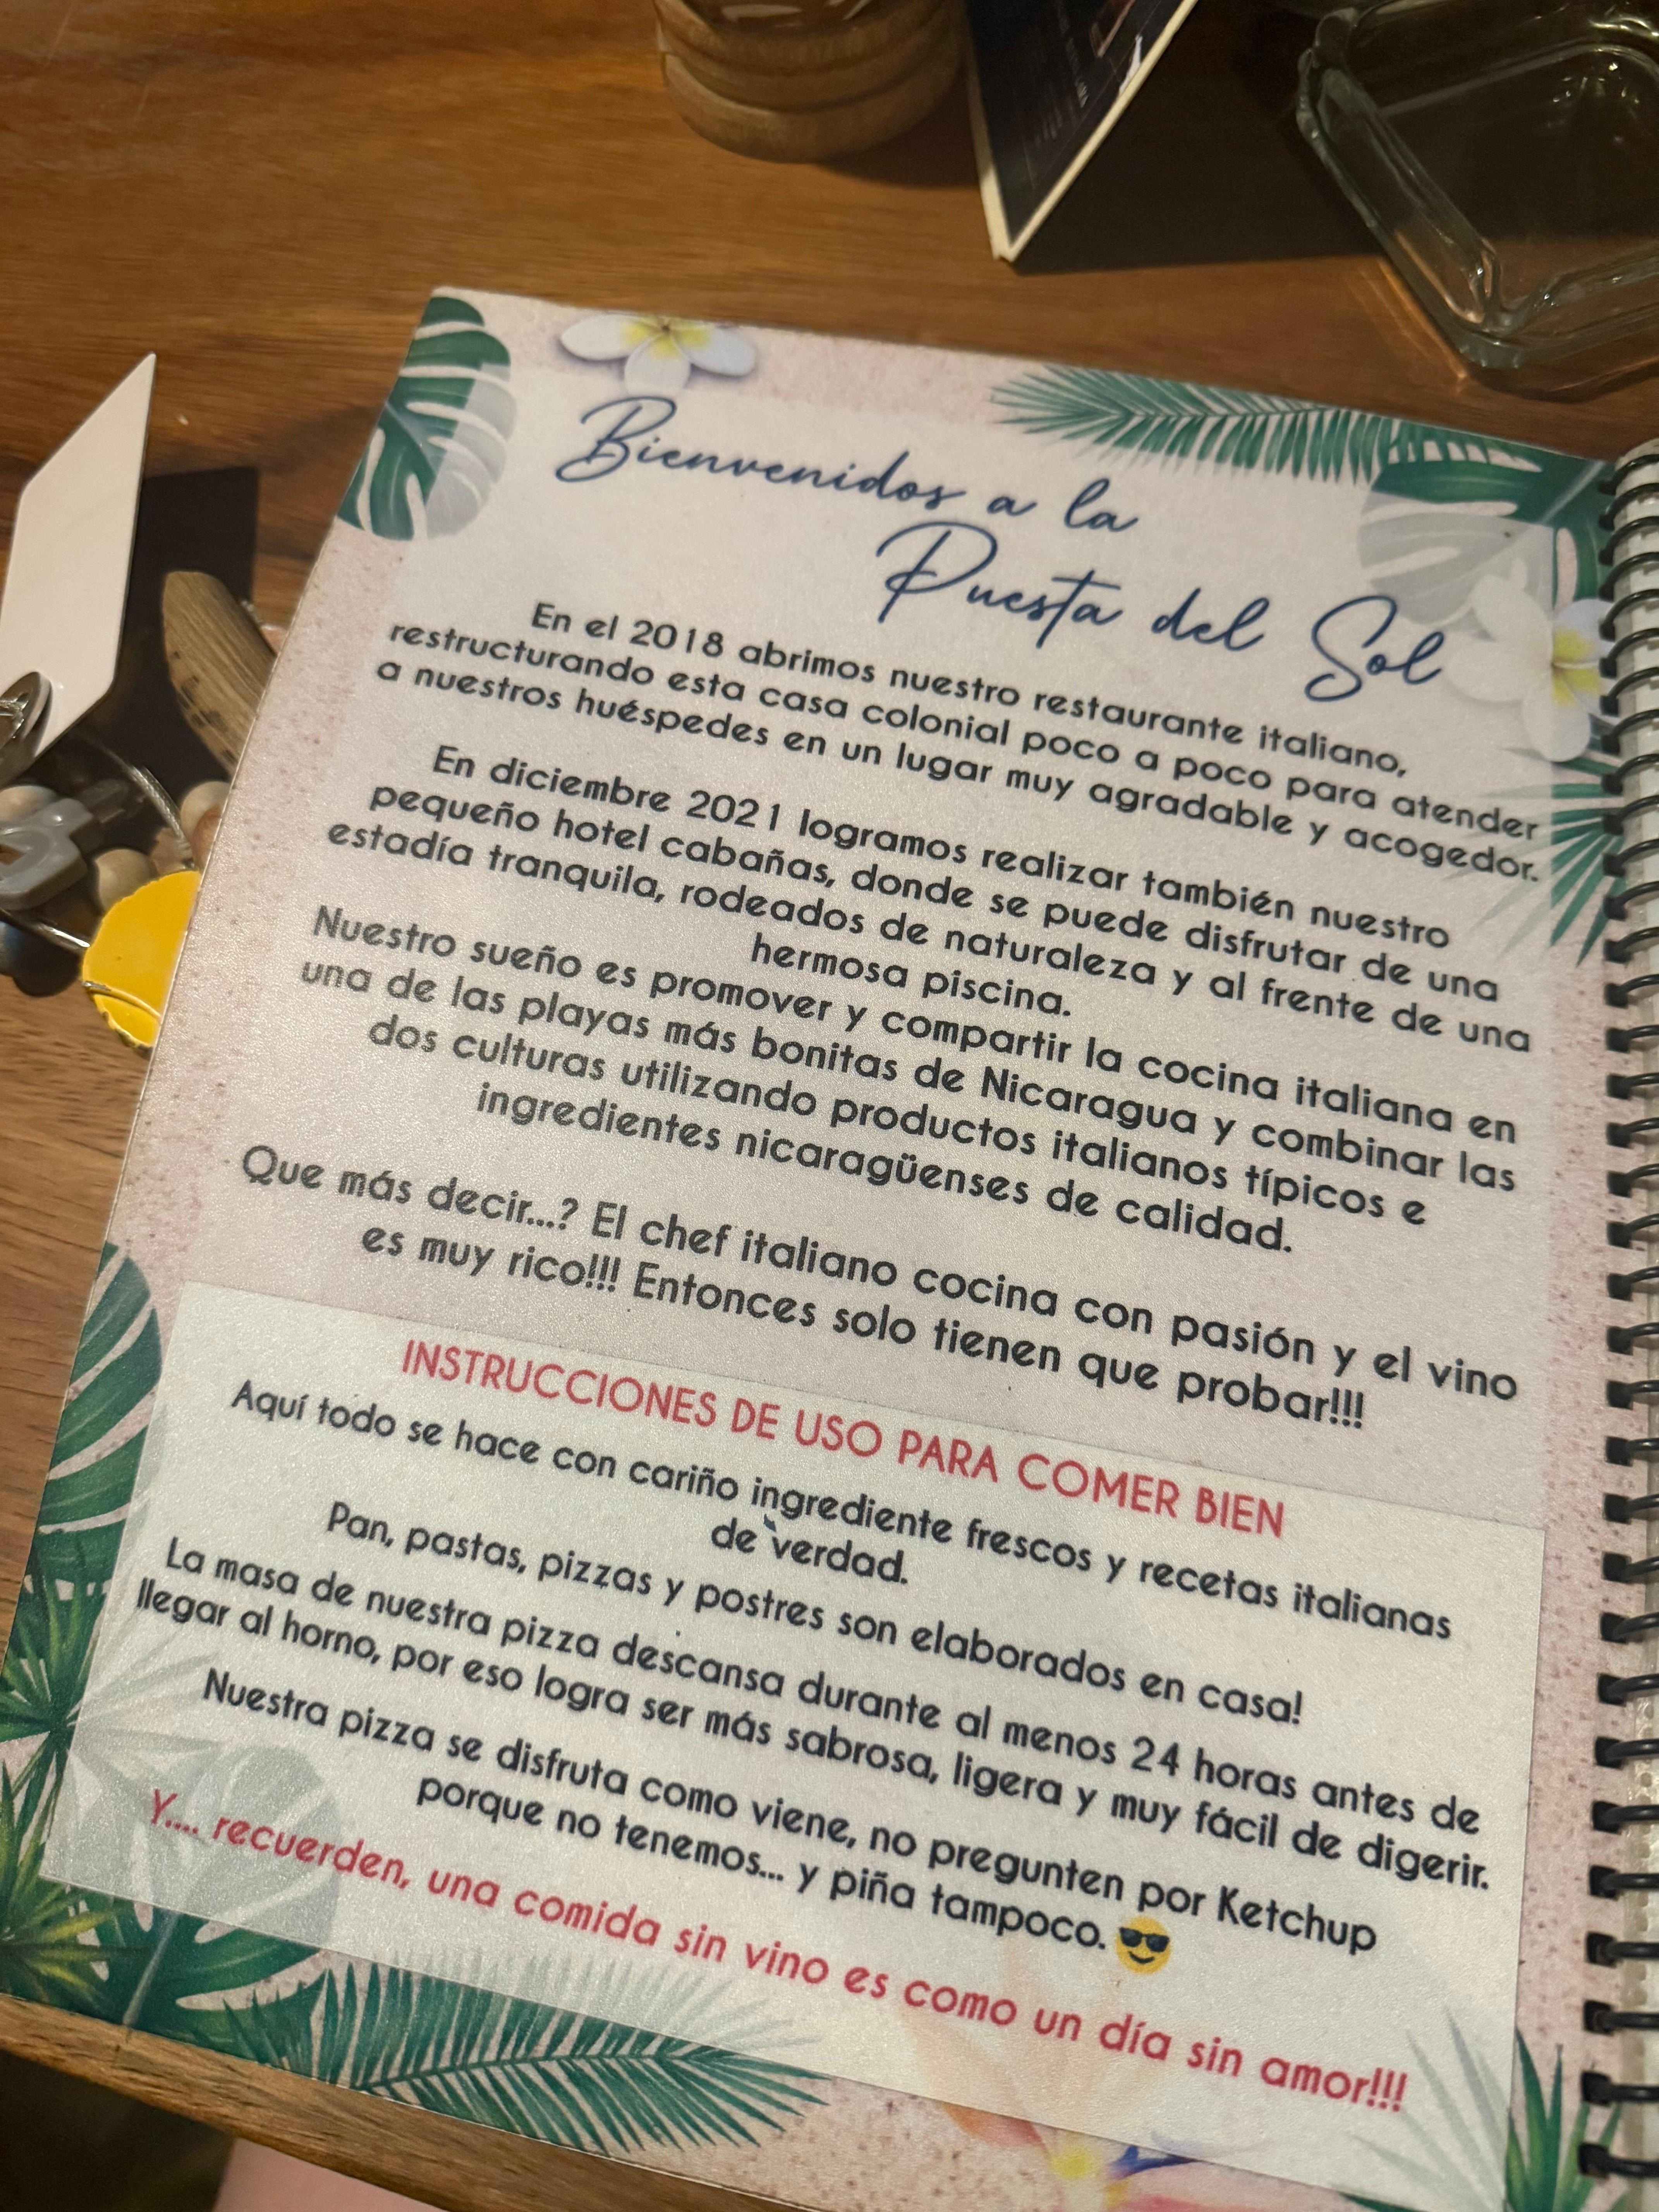 Bienvenidos a la
Puesta del Sol
En el 2018 abrimos nuestro restaurante italiano,
restructurando esta casa colonial poco a poco para atender
a nuestros huéspedes en un lugar muy agradable y acogedor.
En diciembre 2021 logramos realizar también nuestro
pequeño hotel cabañas, donde se puede disfrutar de una
estadía tranquila, rodeados de naturaleza y al frente de una
hermosa piscina.
Nuestro sueño es promover y compartir la cocina italiana en
una de las playas más bonitas de Nicaragua y combinar las
dos culturas utilizando productos italianos típicos e
ingredientes nicaragüenses de calidad.
Que más decir...? El chef italiano cocina con pasión y el vino
es muy rico!!! Entonces solo tienen que probar!!!
INSTRUCCIONES DE USO PARA COMER BIEN
Aquí todo se hace con cariño ingrediente frescos y recetas italianas
de verdad.
Pan, pastas, pizzas y postres son elaborados en casa!
La masa de nuestra pizza descansa durante al menos 24 horas antes de
llegar al horno, por eso logra ser más sabrosa, ligera y muy fácil de digerir.
Nuestra pizza se disfruta como viene, no pregunten por Ketchup
porque no tenemos... y piña tampoco. 😎
Y.... recuerden, una comida sin vino es como un día sin amor!!!